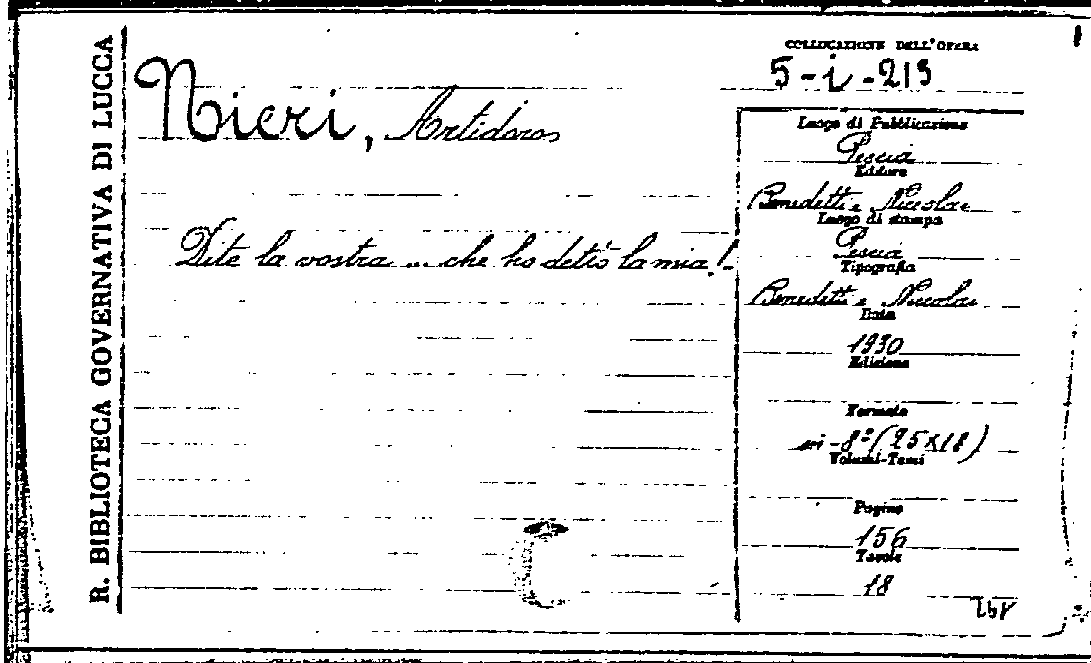 R. BIBLIOTECA GOVERNATIVA DI LUCCA
COLLOCAZIONE DELL'OPERA
5-i-213
Nieri, Artidoros
Dite la vostra ... che ho detto la mia!-
Luogo di Pubblicazione
Pescia
Editore
Benedetti e Niccolai
Luogo di stampa
Pescia
Tipografia
Benedetti e Niccolai
Data
1930
Edizione
Formato
in-8º (25x18)
Volumi-Tomi
Pagine
156
Tavole
18